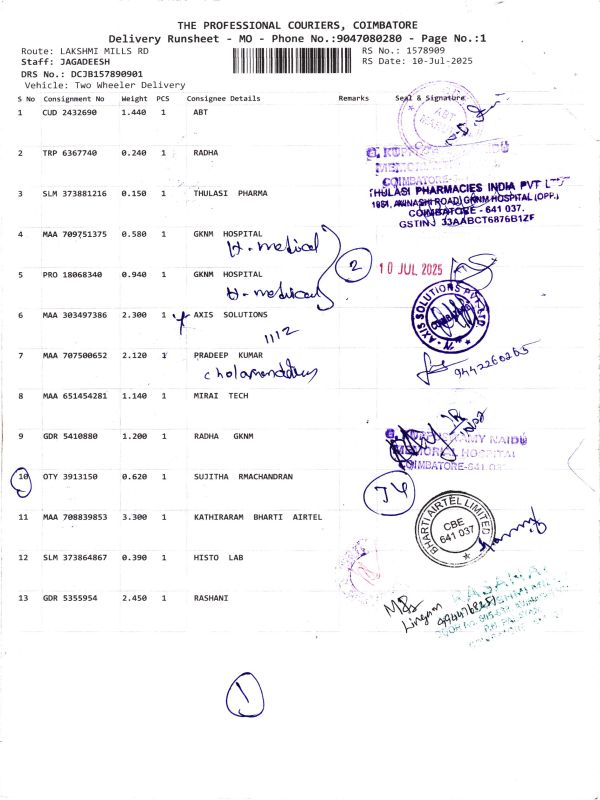 THE PROFESSIONAL COURIERS, COIMBATORE
Delivery Runsheet - MO - Phone No.:9047080280 - Page No.:1
Route: LAKSHMI MILLS RD
RS No.: 1578909
Staff: JAGADEESH
RS Date: 10-Jul-2025
DRS No.: DCJB157890901
Vehicle: Two Wheeler Delivery
S No Consignment No Weight PCS Consignee Details Remarks Seal & Signature
1 CUD 2432690 1.440 1 ABT
ABT
2 TRP 6367740 0.240 1 RADHA
COIMBATORE
3 SLM 373881216 0.150 1 THULASI PHARMA
THULASI PHARMACIES INDIA PVT LTD
1951, AVINASHI ROAD, GKNM HOSPITAL (OPP.)
COIMBATORE - 641 037.
GSTIN: 33AABCT6876B1ZF
4 MAA 709751375 0.580 1 GKNM HOSPITAL
H-medical
2
10 JUL 2025
5 PRO 18068340 0.940 1 GKNM HOSPITAL
H-medical
6 MAA 303497386 2.300 1 AXIS SOLUTIONS
AXIS SOLUTIONS PVT LTD.
1112
7 MAA 707500652 2.120 1 PRADEEP KUMAR
9442260265
8 MAA 651454281 1.140 1 MIRAI TECH
9 GDR 5410880 1.200 1 RADHA GKNM
G. KUPPUSWAMY NAIDU
MEMORIAL HOSPITAL
COIMBATORE-641 037
10 OTY 3913150 0.620 1 SUJITHA RMACHANDRAN
J4
11 MAA 708839853 3.300 1 KATHIRARAM BHARTI AIRTEL
BHARTI AIRTEL LIMITED
CBE
641 037
12 SLM 373864867 0.390 1 HISTO LAB
13 GDR 5355954 2.450 1 RASHANI
Lingam
1